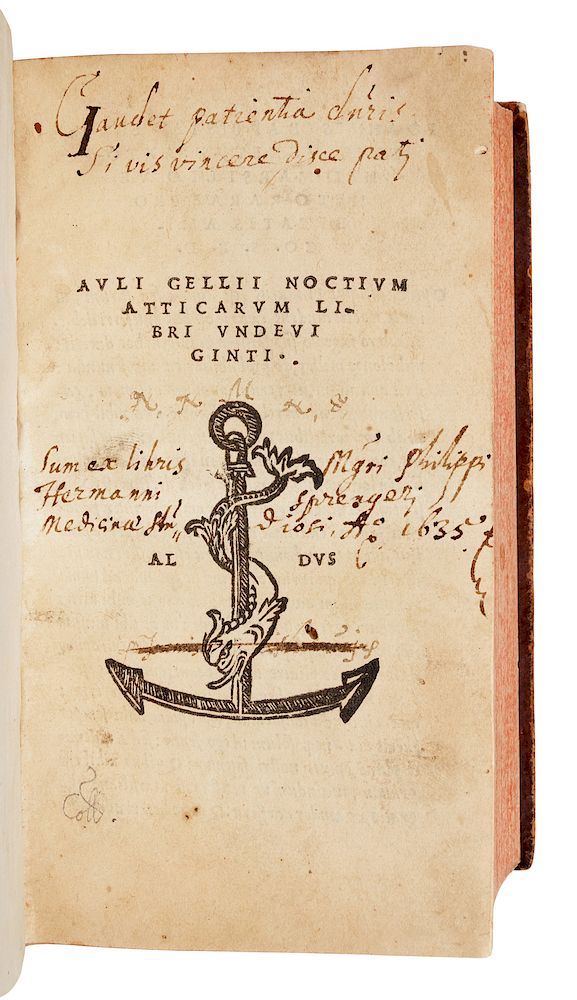 Gaudet patientia duris
Si vis vincere disce pati
AVLI GELLII NOCTIVM
ATTICARVM LI-
BRI VNDEVI
GINTI.
Sum ex libris Mgri Philippi
Hermanni sprengeri
Medicinæ Stu diosi, Ao 1635
AL DVS
Coll.